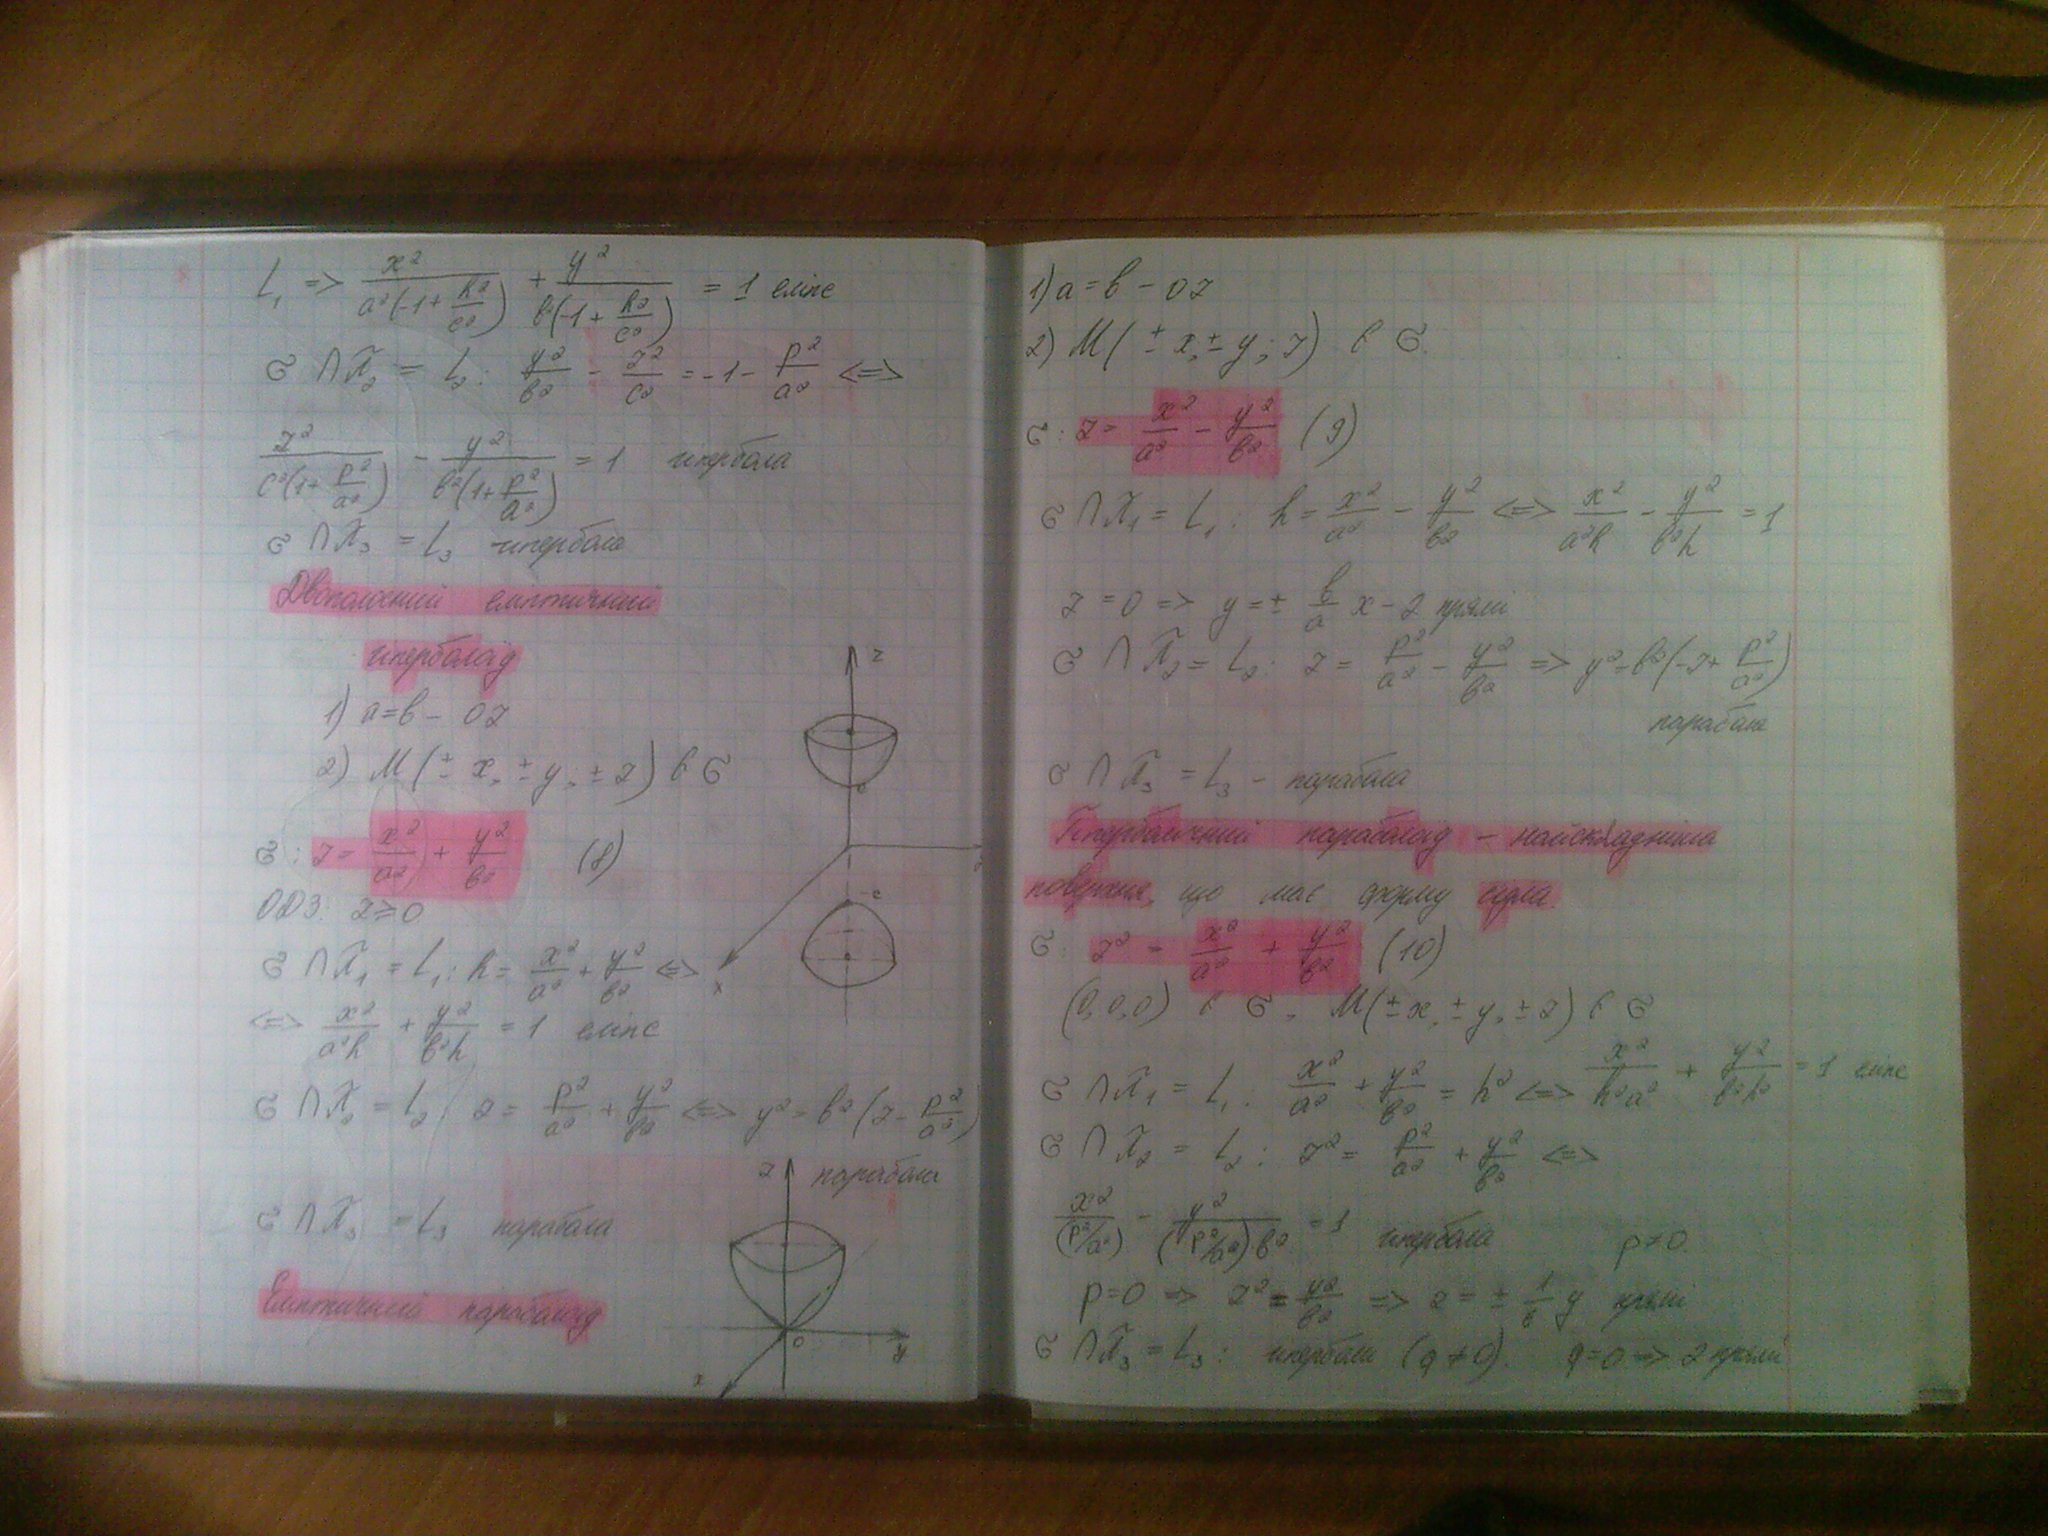 L₁ => x²/(a²(-1+h²/c²)) + y²/(b²(-1+h²/c²)) = 1 еліпс
σ ∩ π₂ = L₂: y²/b² - z²/c² = -1 - p²/a² <=>
z²/(c²(1+p²/a²)) - y²/(b²(1+p²/a²)) = 1 гіпербола
σ ∩ π₃ = L₃ - гіпербола
Двополосний еліптичний
гіперболоїд
1) a=b - OZ
2) M(±x, ±y, ±z) є σ
z
c
-c
x
σ: z = x²/a² + y²/b² (8)
ОДЗ: z ≥ 0
σ ∩ π₁ = L₁: h = x²/a² + y²/b² <=>
<=> x²/(a²h) + y²/(b²h) = 1 еліпс
σ ∩ π₂ = L₂: z = p²/a² + y²/b² <=> y² = b²(z - p²/a²)
парабола
σ ∩ π₃ = L₃ парабола
Еліптичний параболоїд
z
0
y
x
1) a=b - OZ
2) M(±x, ±y, z) є σ.
σ: z = x²/a² - y²/b² (9)
σ ∩ π₁ = L₁: h = x²/a² - y²/b² <=> x²/(a²h) - y²/(b²h) = 1
z = 0 => y = ± b/a x - 2 прямі
σ ∩ π₂ = L₂: z = p²/a² - y²/b² => y² = b²(-z + p²/a²)
парабола
σ ∩ π₃ = L₃ - парабола
Гіперболічний параболоїд - найскладніша
поверхня, що має форму сідла.
σ: z² = x²/a² + y²/b² (10)
(0,0,0) є σ, M(±x, ±y, ±z) є σ
σ ∩ π₁ = L₁: x²/a² + y²/b² = h² <=> x²/(h²a²) + y²/(b²h²) = 1 еліпс
σ ∩ π₂ = L₂: z² = p²/a² + y²/b² <=>
x²/(p²/a²) - y²/((p²/a²)·b²) = 1 гіпербола p ≠ 0
p=0 => z² = y²/b² => z = ± 1/b y прямі
σ ∩ π₃ = L₃: гіпербола (q ≠ 0). q=0 => 2 прямі